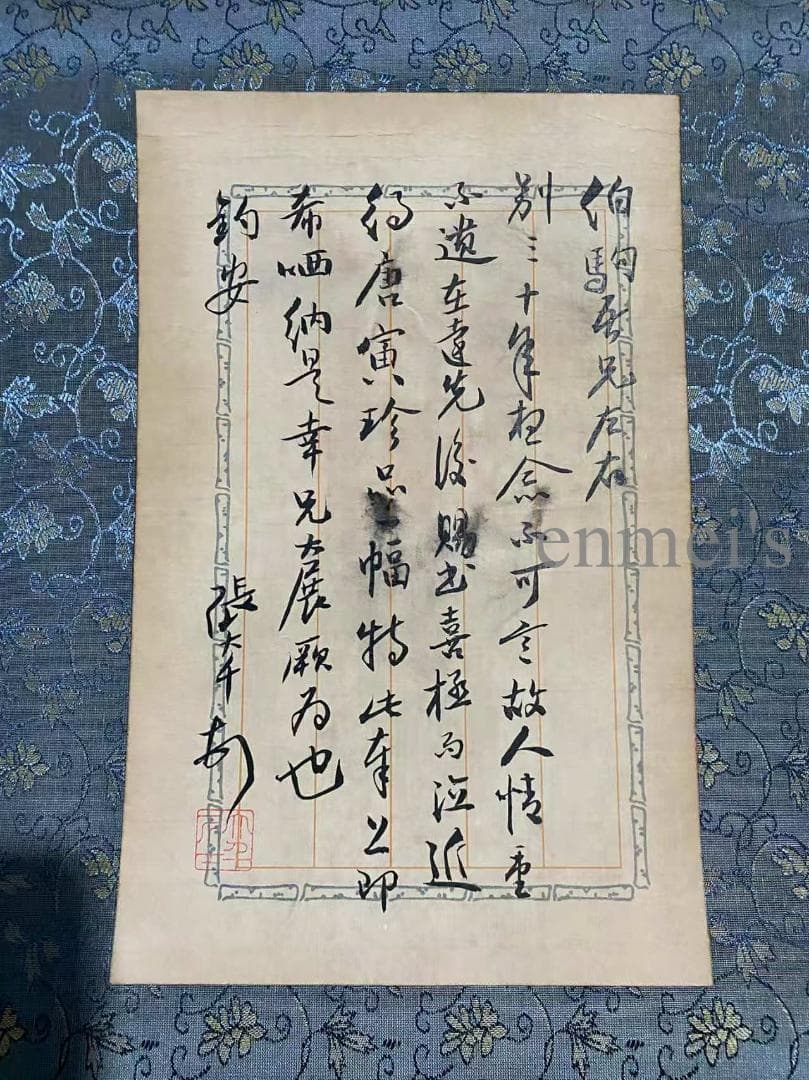 伯駒吾兄左右
別三十年想念不可言故人情重
不遺在遠先後賜書喜極而泣近
得唐寅珍品一幅特此奉上即
希哂納是幸兄大展厥為也
鈞安
張大千
enmei's